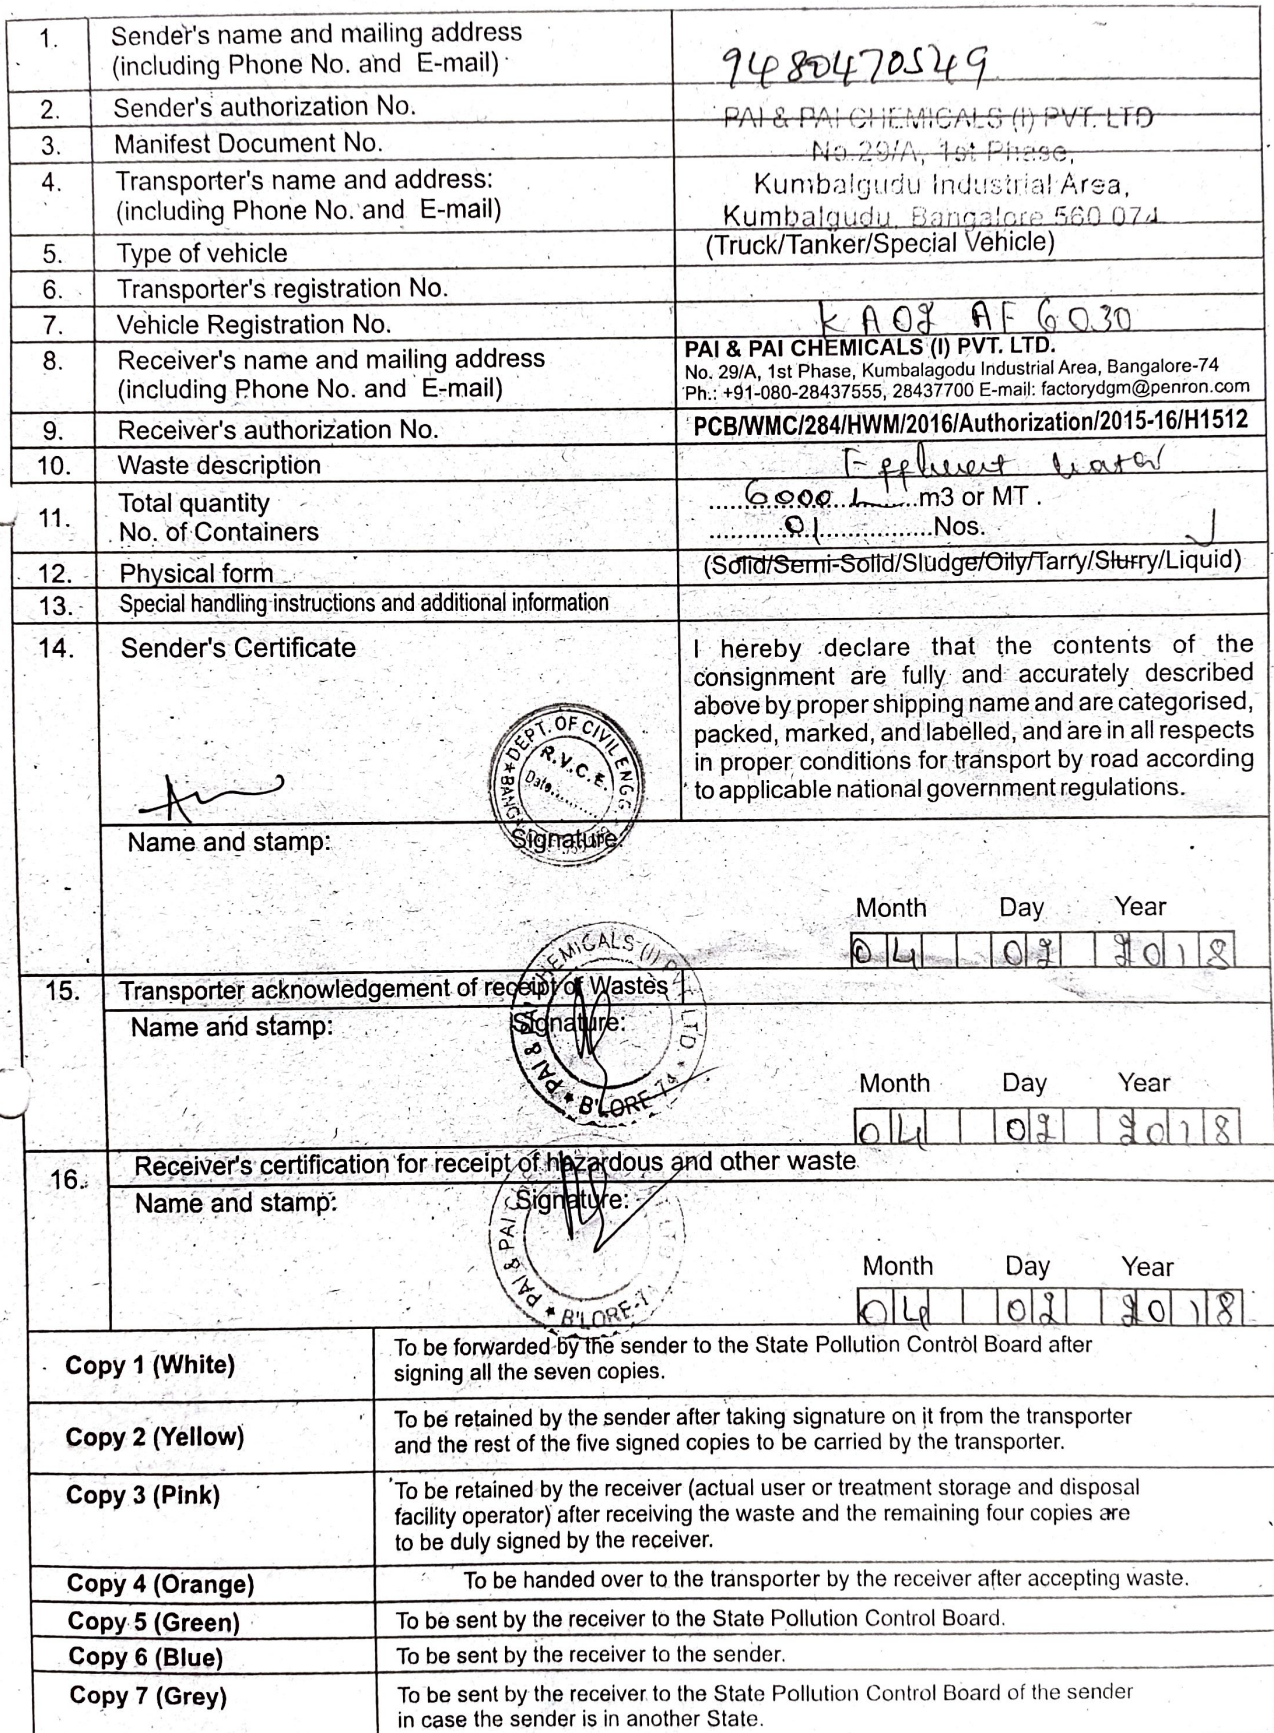 1. Sender's name and mailing address
(including Phone No. and E-mail)
9480470549
2. Sender's authorization No.
PAI & PAI CHEMICALS (I) PVT. LTD
3. Manifest Document No.
No.29/A, 1st Phase,
4. Transporter's name and address:
(including Phone No. and E-mail)
Kumbalgudu Industrial Area,
Kumbalgudu, Bangalore 560 074
5. Type of vehicle (Truck/Tanker/Special Vehicle)
6. Transporter's registration No.
7. Vehicle Registration No. KA02 AF 6030
8. Receiver's name and mailing address
(including Phone No. and E-mail)
PAI & PAI CHEMICALS (I) PVT. LTD.
No. 29/A, 1st Phase, Kumbalagodu Industrial Area, Bangalore-74
Ph.: +91-080-28437555, 28437700 E-mail: factorydgm@penron.com
9. Receiver's authorization No. PCB/WMC/284/HWM/2016/Authorization/2015-16/H1512
10. Waste description Effluent water
11. Total quantity
No. of Containers
6000 L m3 or MT .
01 Nos.
12. Physical form (Solid/Semi-Solid/Sludge/Oily/Tarry/Slurry/Liquid)
13. Special handling instructions and additional information
14. Sender's Certificate
I hereby declare that the contents of the
consignment are fully and accurately described
above by proper shipping name and are categorised,
packed, marked, and labelled, and are in all respects
in proper conditions for transport by road according
to applicable national government regulations.
DEPT. OF CIVIL ENGG
R.V.C.E.
Date..........
Name and stamp: Signature:
Month Day Year
04 02 2018
15. Transporter acknowledgement of receipt of Wastes
Name and stamp: Signature:
PAI & PAI CHEMICALS (I) PVT. LTD. * B'LORE-74 *
Month Day Year
04 02 2018
16. Receiver's certification for receipt of hazardous and other waste
Name and stamp: Signature:
PAI & PAI
B'LORE-7
Month Day Year
04 02 2018
Copy 1 (White) To be forwarded by the sender to the State Pollution Control Board after
signing all the seven copies.
Copy 2 (Yellow) To be retained by the sender after taking signature on it from the transporter
and the rest of the five signed copies to be carried by the transporter.
Copy 3 (Pink) To be retained by the receiver (actual user or treatment storage and disposal
facility operator) after receiving the waste and the remaining four copies are
to be duly signed by the receiver.
Copy 4 (Orange) To be handed over to the transporter by the receiver after accepting waste.
Copy 5 (Green) To be sent by the receiver to the State Pollution Control Board.
Copy 6 (Blue) To be sent by the receiver to the sender.
Copy 7 (Grey) To be sent by the receiver to the State Pollution Control Board of the sender
in case the sender is in another State.